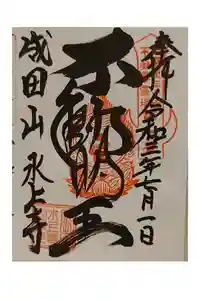 奉拝 令和三年七月一日
不動明王
成田山 水上寺